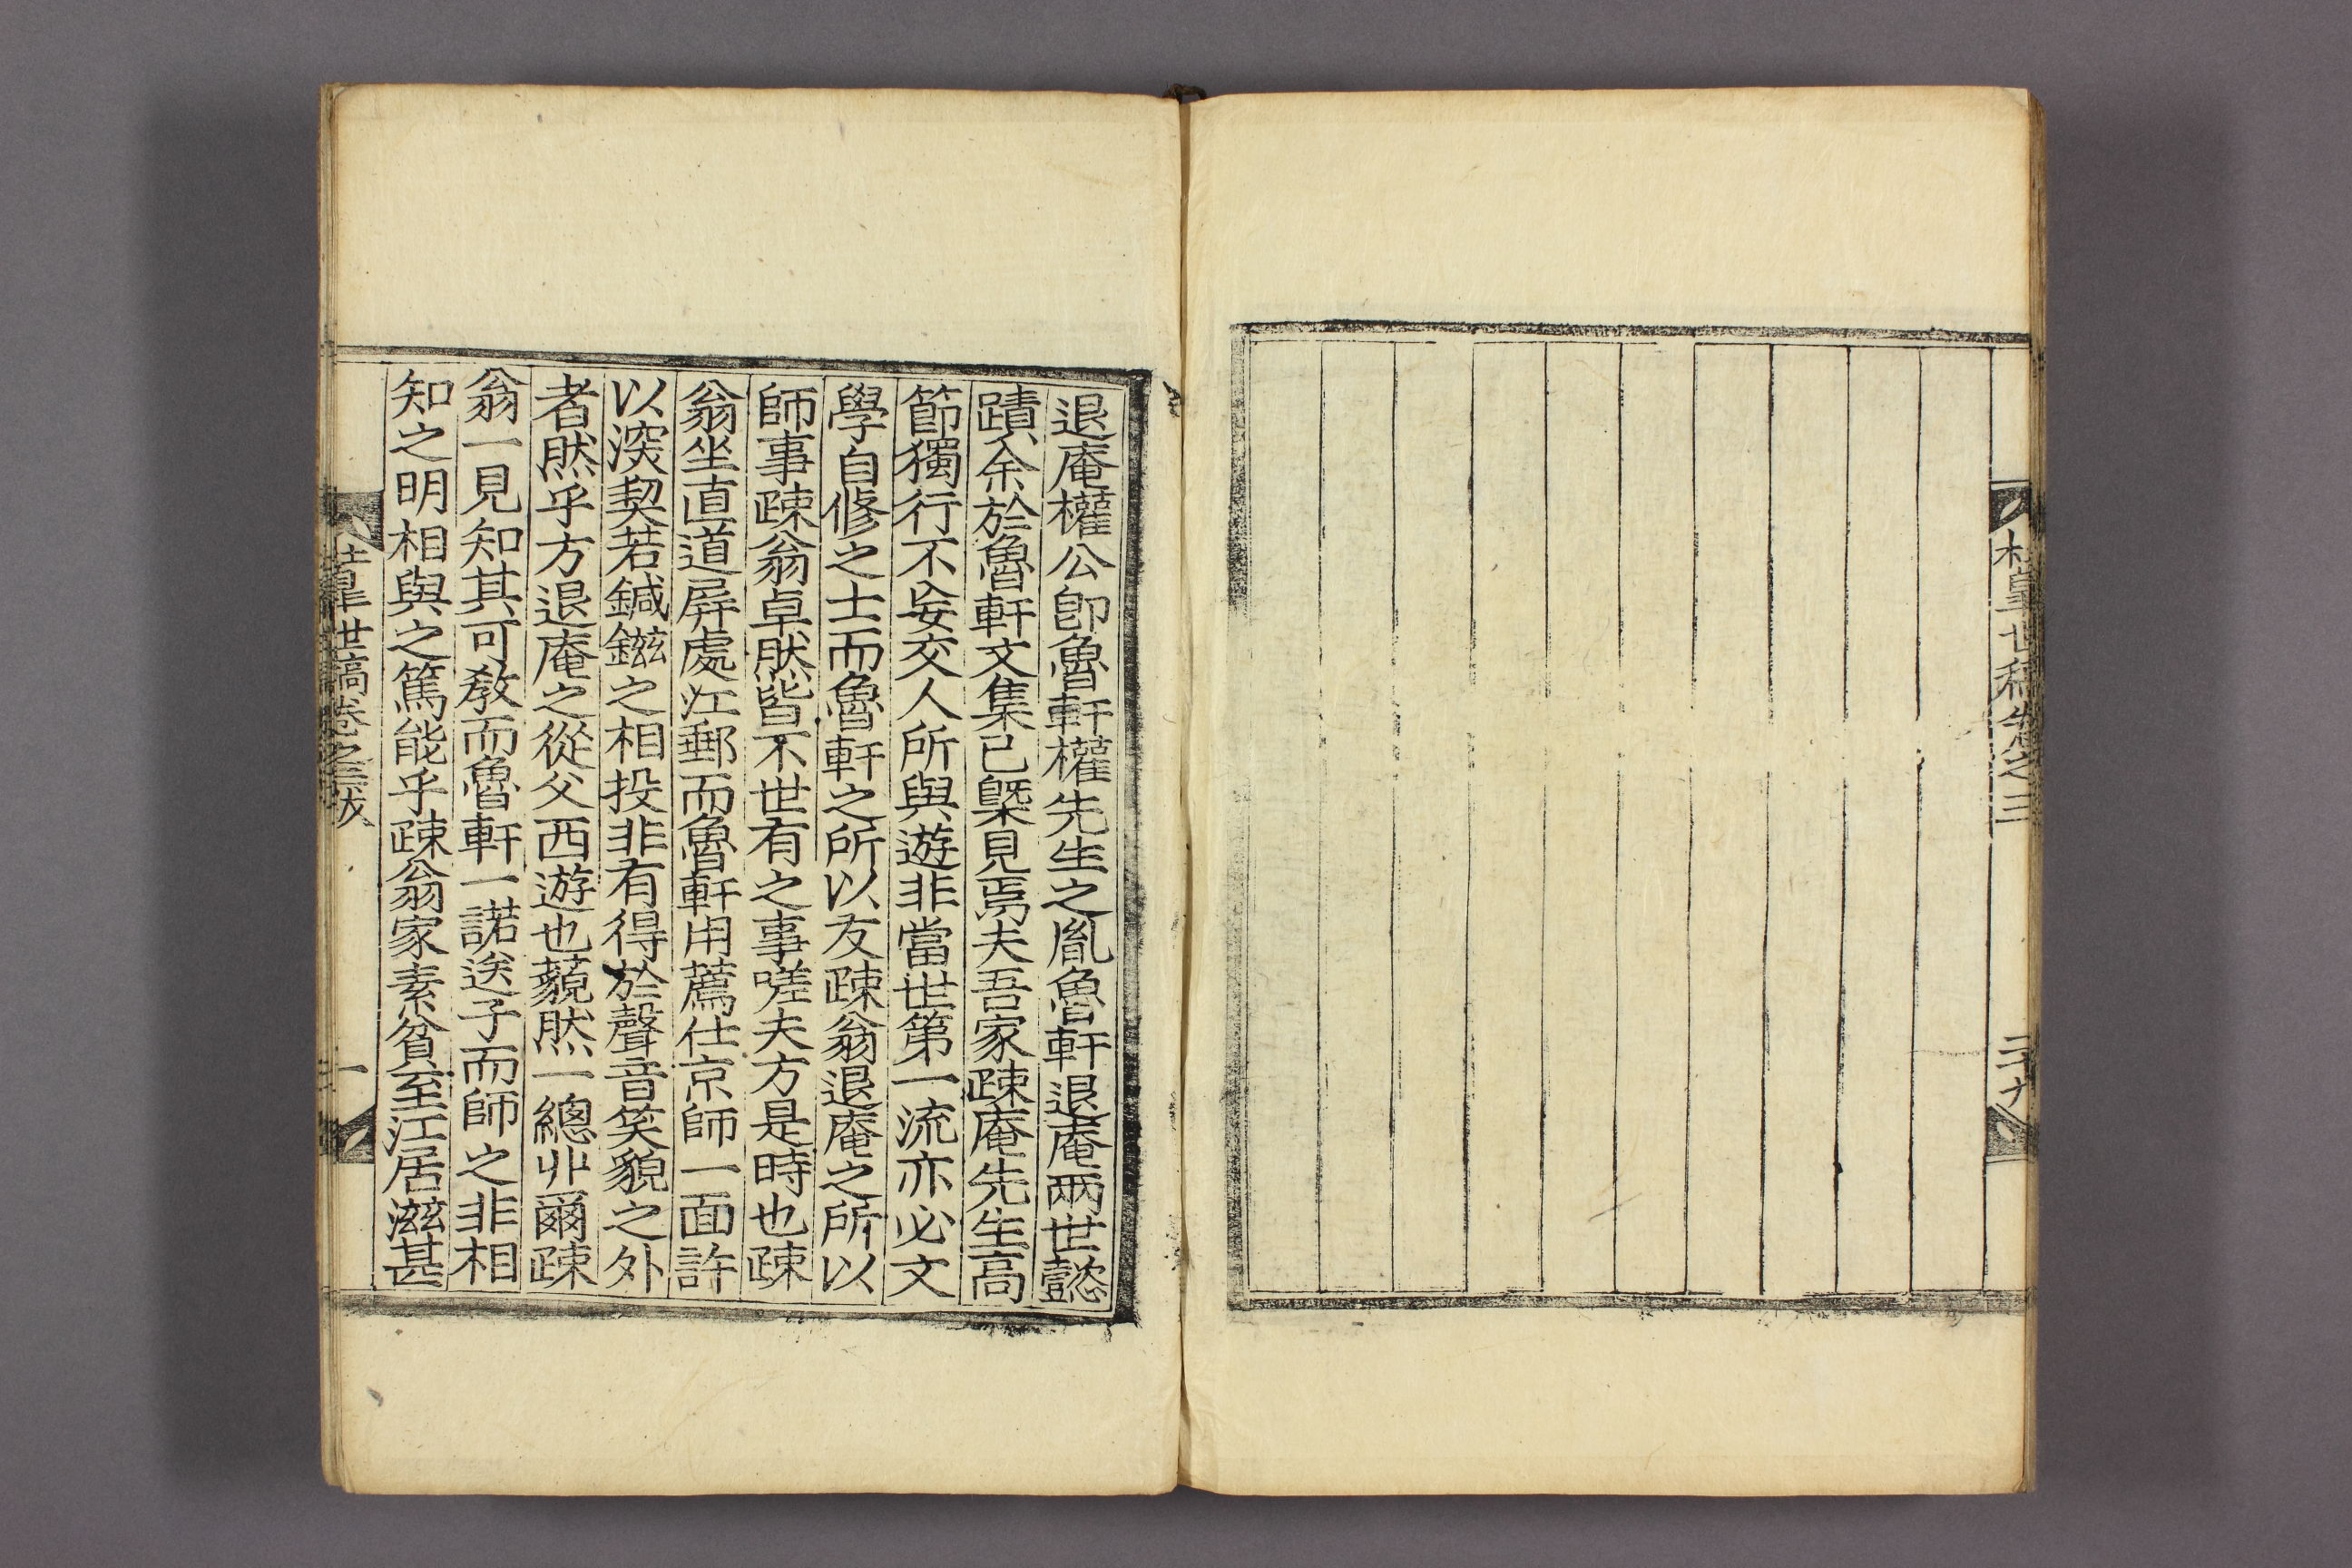 杜皐世稿卷之三
二十九
退庵權公卽魯軒權先生之胤魯軒退庵兩世懿
蹟余於魯軒文集已槩見焉夫吾家踈庵先生高
節獨行不妄交人所與遊非當世第一流亦必文
學自修之士而魯軒之所以友踈翁退庵之所以
師事踈翁卓然皆不世有之事嗟夫方是時也踈
翁坐直道屛處江郵而魯軒用薦仕京師一面許
以深契若鍼鎡之相投非有得於聲音笑貌之外
者然乎方退庵之從父西遊也藐然一總丱爾踈
翁一見知其可敎而魯軒一諾送子而師之非相
知之明相與之篤能乎踈翁家素貧至江居滋甚
杜皐世稿卷之三跋
一